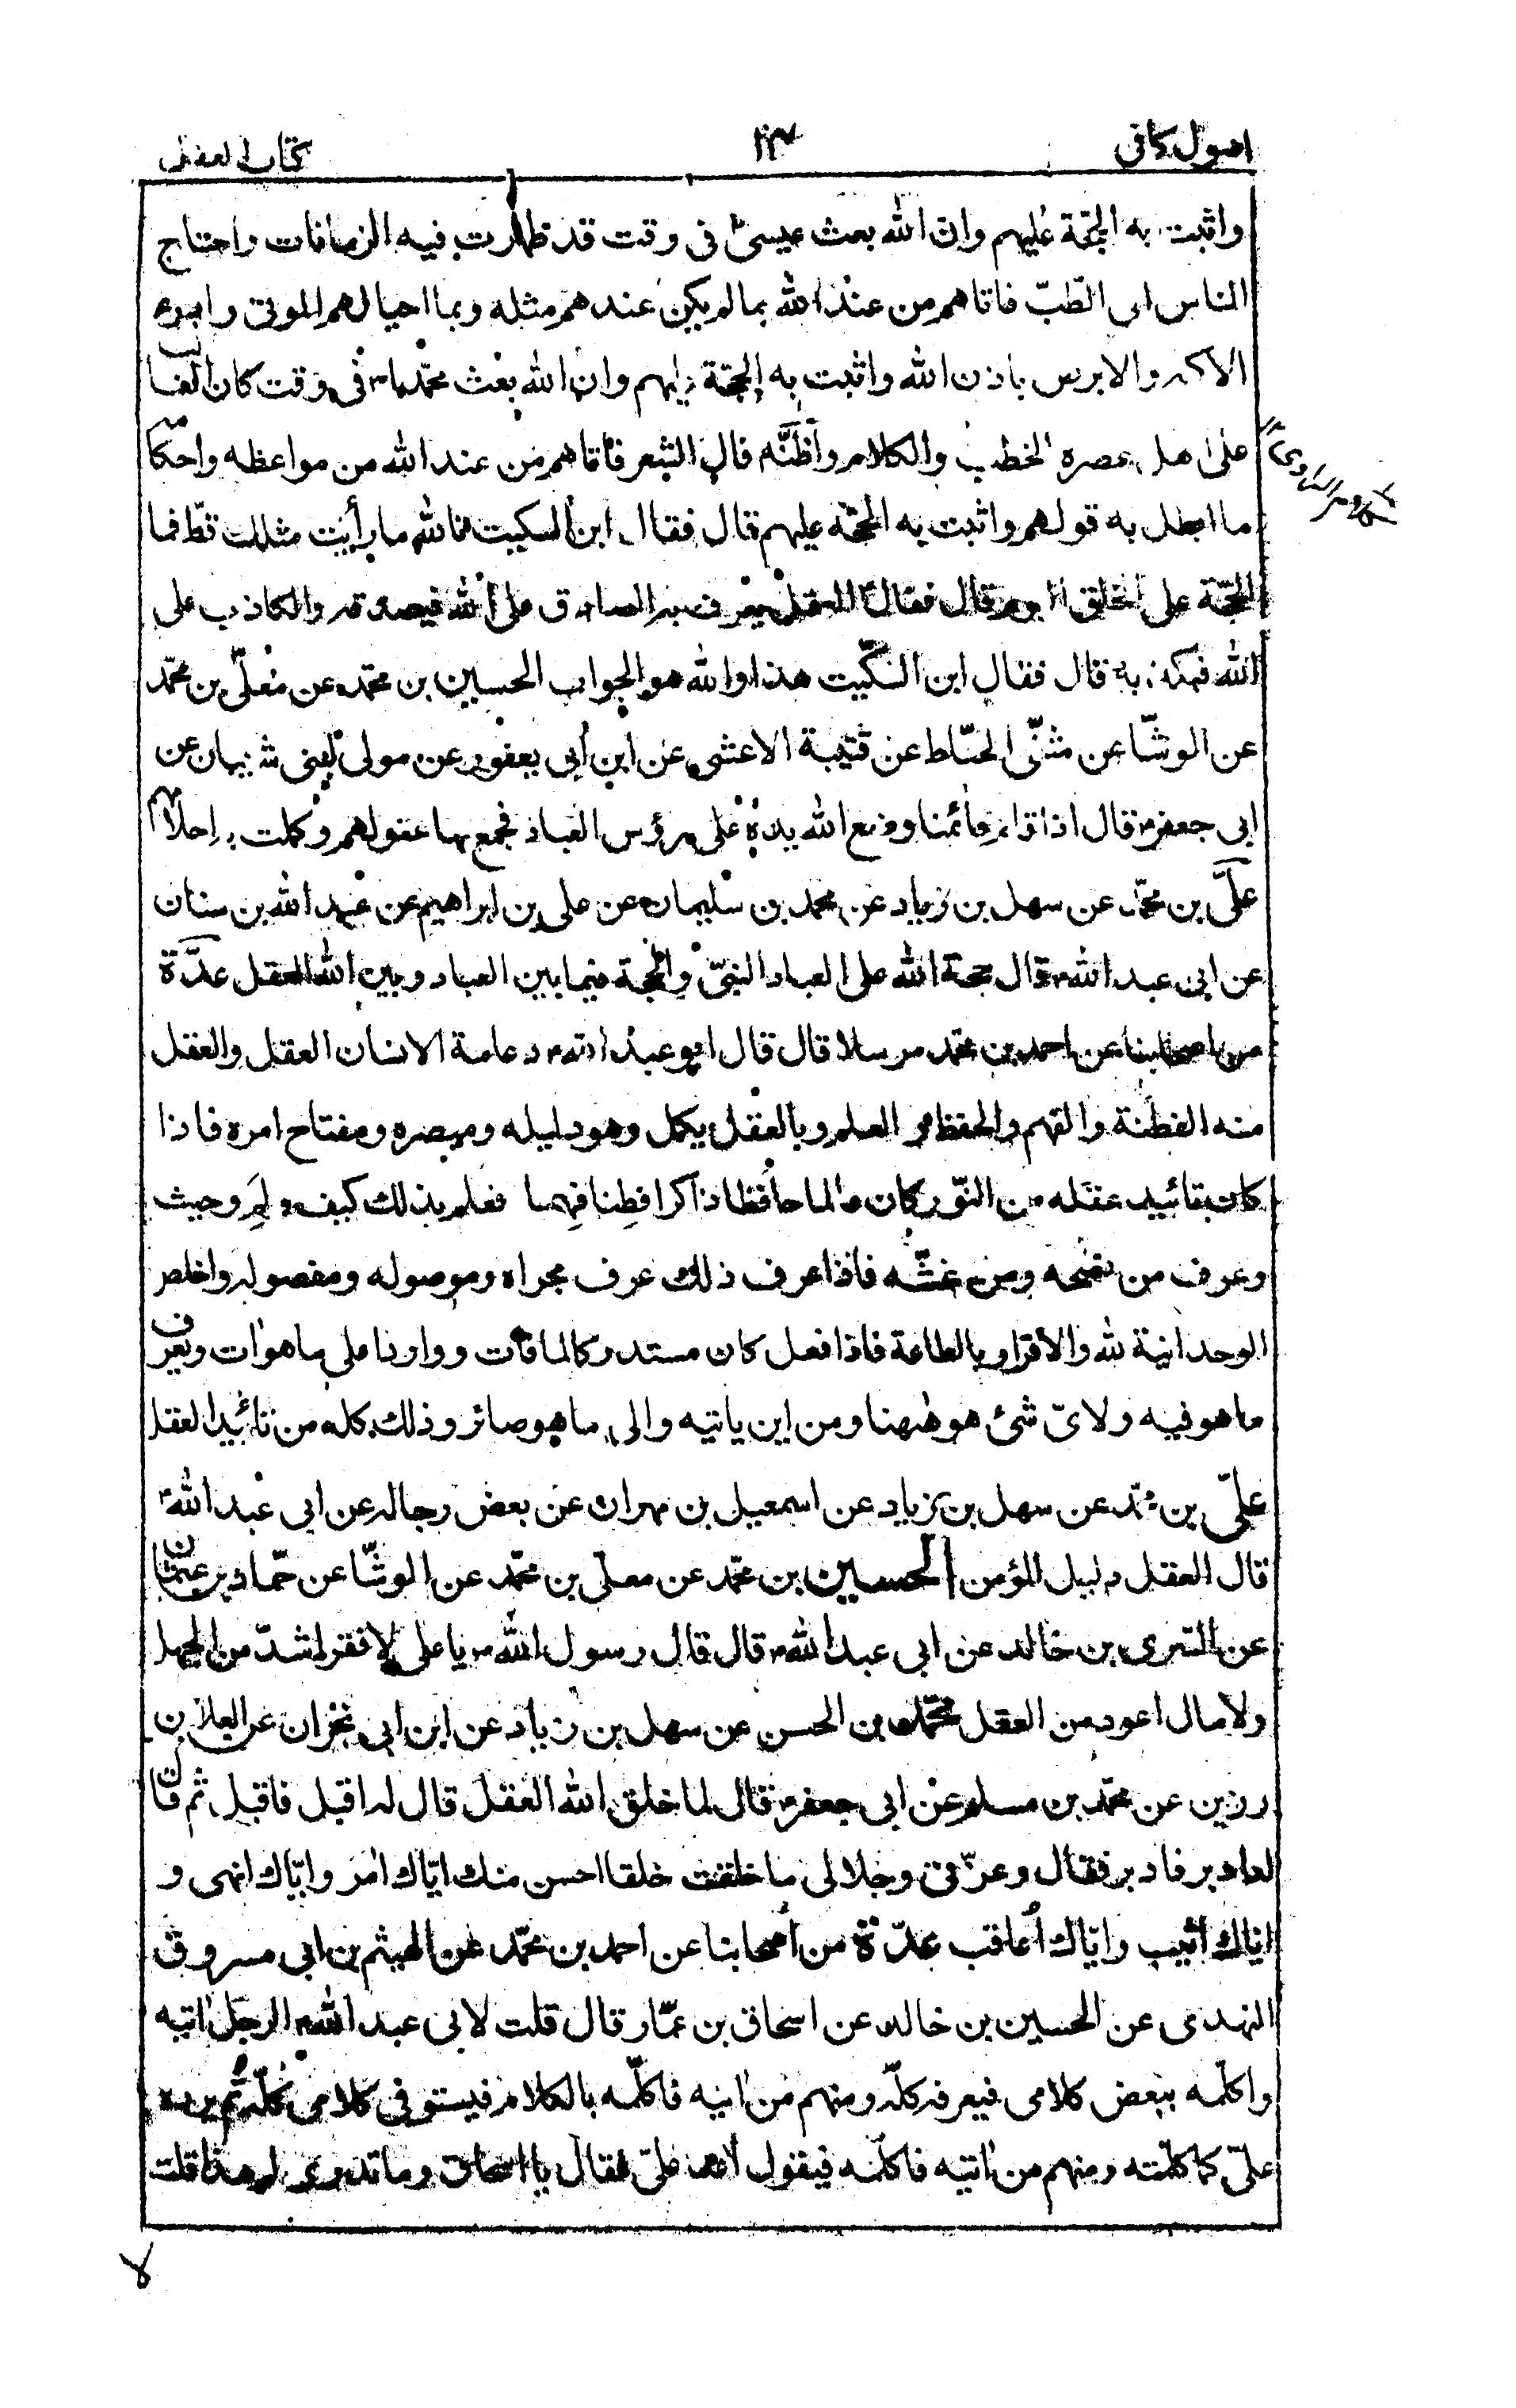 اصول كافى ١٣ كتاب العقل
واثبت به الحجّة عليهم وان الله بعث عيسىٰ فى وقت قد ظهرت فيه الزمانات واحتاج
الناس الى الطّبّ فاتاهم من عند الله بما لم يكن عندهم مثله وبما احيا لهم الموتى وابرء
الاكمه والابرص باذن الله واثبت به الحجّة عليهم وان الله بعث محمّدا ص فى وقت كان الغالب
على اهل عصره الخطب والكلام وأظُنَّه قال الشعر فأتاهم من عند الله من مواعظه واحكامه
ما ابطل به قولهم واثبت به الحجّة عليهم قال فقال ابن السكيت تالله ما رأيت مثلك قطّ فما
الحجّة على الخلق اليوم قال فقال العقل يعرف به الصادق على الله فيصدقه والكاذب على
الله فيكذبه قال فقال ابن السّكّيت هذا والله هو الجواب الحسين بن محمد عن معلّى بن محمّد
عن الوشّا عن مثنّى الحنّاط عن قتيبة الاعشى عن ابن أبى يعفور عن مولى لبنى شيبان عن
ابى جعفر ع قال اذا قام قائمنا وضع الله يده على رؤس العباد فجمع بها عقولهم وكملت به احلامهم
علىّ بن محمّد عن سهل بن زياد عن محمد بن سليمان عن على بن ابراهيم عن عبد الله بن سنان
عن ابى عبد الله ع قال حجة الله على العباد النبىّ والحجة فيما بين العباد وبين الله العقل عدّة
من اصحابنا عن احمد بن محمد مرسلا قال قال ابو عبد الله ع دعامة الانسان العقل والعقل
منه الفطنة والفهم والحفظ و العلم وبالعقل يكمل وهو دليله ومبصره ومفتاح امره فاذا
كان تائيد عقله من النّور كان عالما حافظا ذاكرا فطِنا فهِما فعلم بذلك كيف و لِمَ وحيث
وعرف من نصحه ومن غشّه فاذا عرف ذلك عرف مجراه وموصوله ومفصوله واخلص
الوحدانية لله والاقرار بالطاعة فاذا فعل كان مستدركا لما فات وواردا على ما هو ات ويعرف
ما هو فيه ولاىّ شئ هو هٰهنا ومن اين ياتيه والى ما هو صائر وذلك كله من تائيد العقل
علىّ بن محمّد عن سهل بن زياد عن اسمعيل بن مهران عن بعض رجاله عن ابى عبد الله ع
قال العقل دليل المؤمن الحسين بن محمّد عن معلّى بن محمّد عن الوشّا عن حمّاد بن عثمان
عن السّرى بن خالد عن ابى عبد الله ع قال قال رسول الله ص يا على لا فقر اشدّ من الجهل
ولا مال اعود من العقل محمّد بن الحسن عن سهل بن زياد عن ابن ابى نجران عن العلا بن
رزين عن محمّد بن مسلم عن ابى جعفر ع قال لما خلق الله العقل قال له اقبل فاقبل ثم قال
له ادبر فادبر فقال وعزّتى وجلالى ما خلقت خلقا احسن منك ايّاك امر وايّاك انهى و
ايّاك اثيب وايّاك أعاقب عدّة من أصحابنا عن احمد بن محمّد عن الهيثم بن ابى مسروق
النهدى عن الحسين بن خالد عن اسحاق بن عمّار قال قلت لابى عبد الله ع الرجل اٰتيه
واكلّمه ببعض كلامى فيعرفه كلّه ومنهم من اٰتيه فاكلّمه بالكلام فيستوفى كلامى كلّه ثم يرده
علىّ كما كلّمته ومنهم من اٰتيه فاكلّمه فيقول أعد علىّ فقال يا اسحاق وما تدرى لم هذا قلت
لا